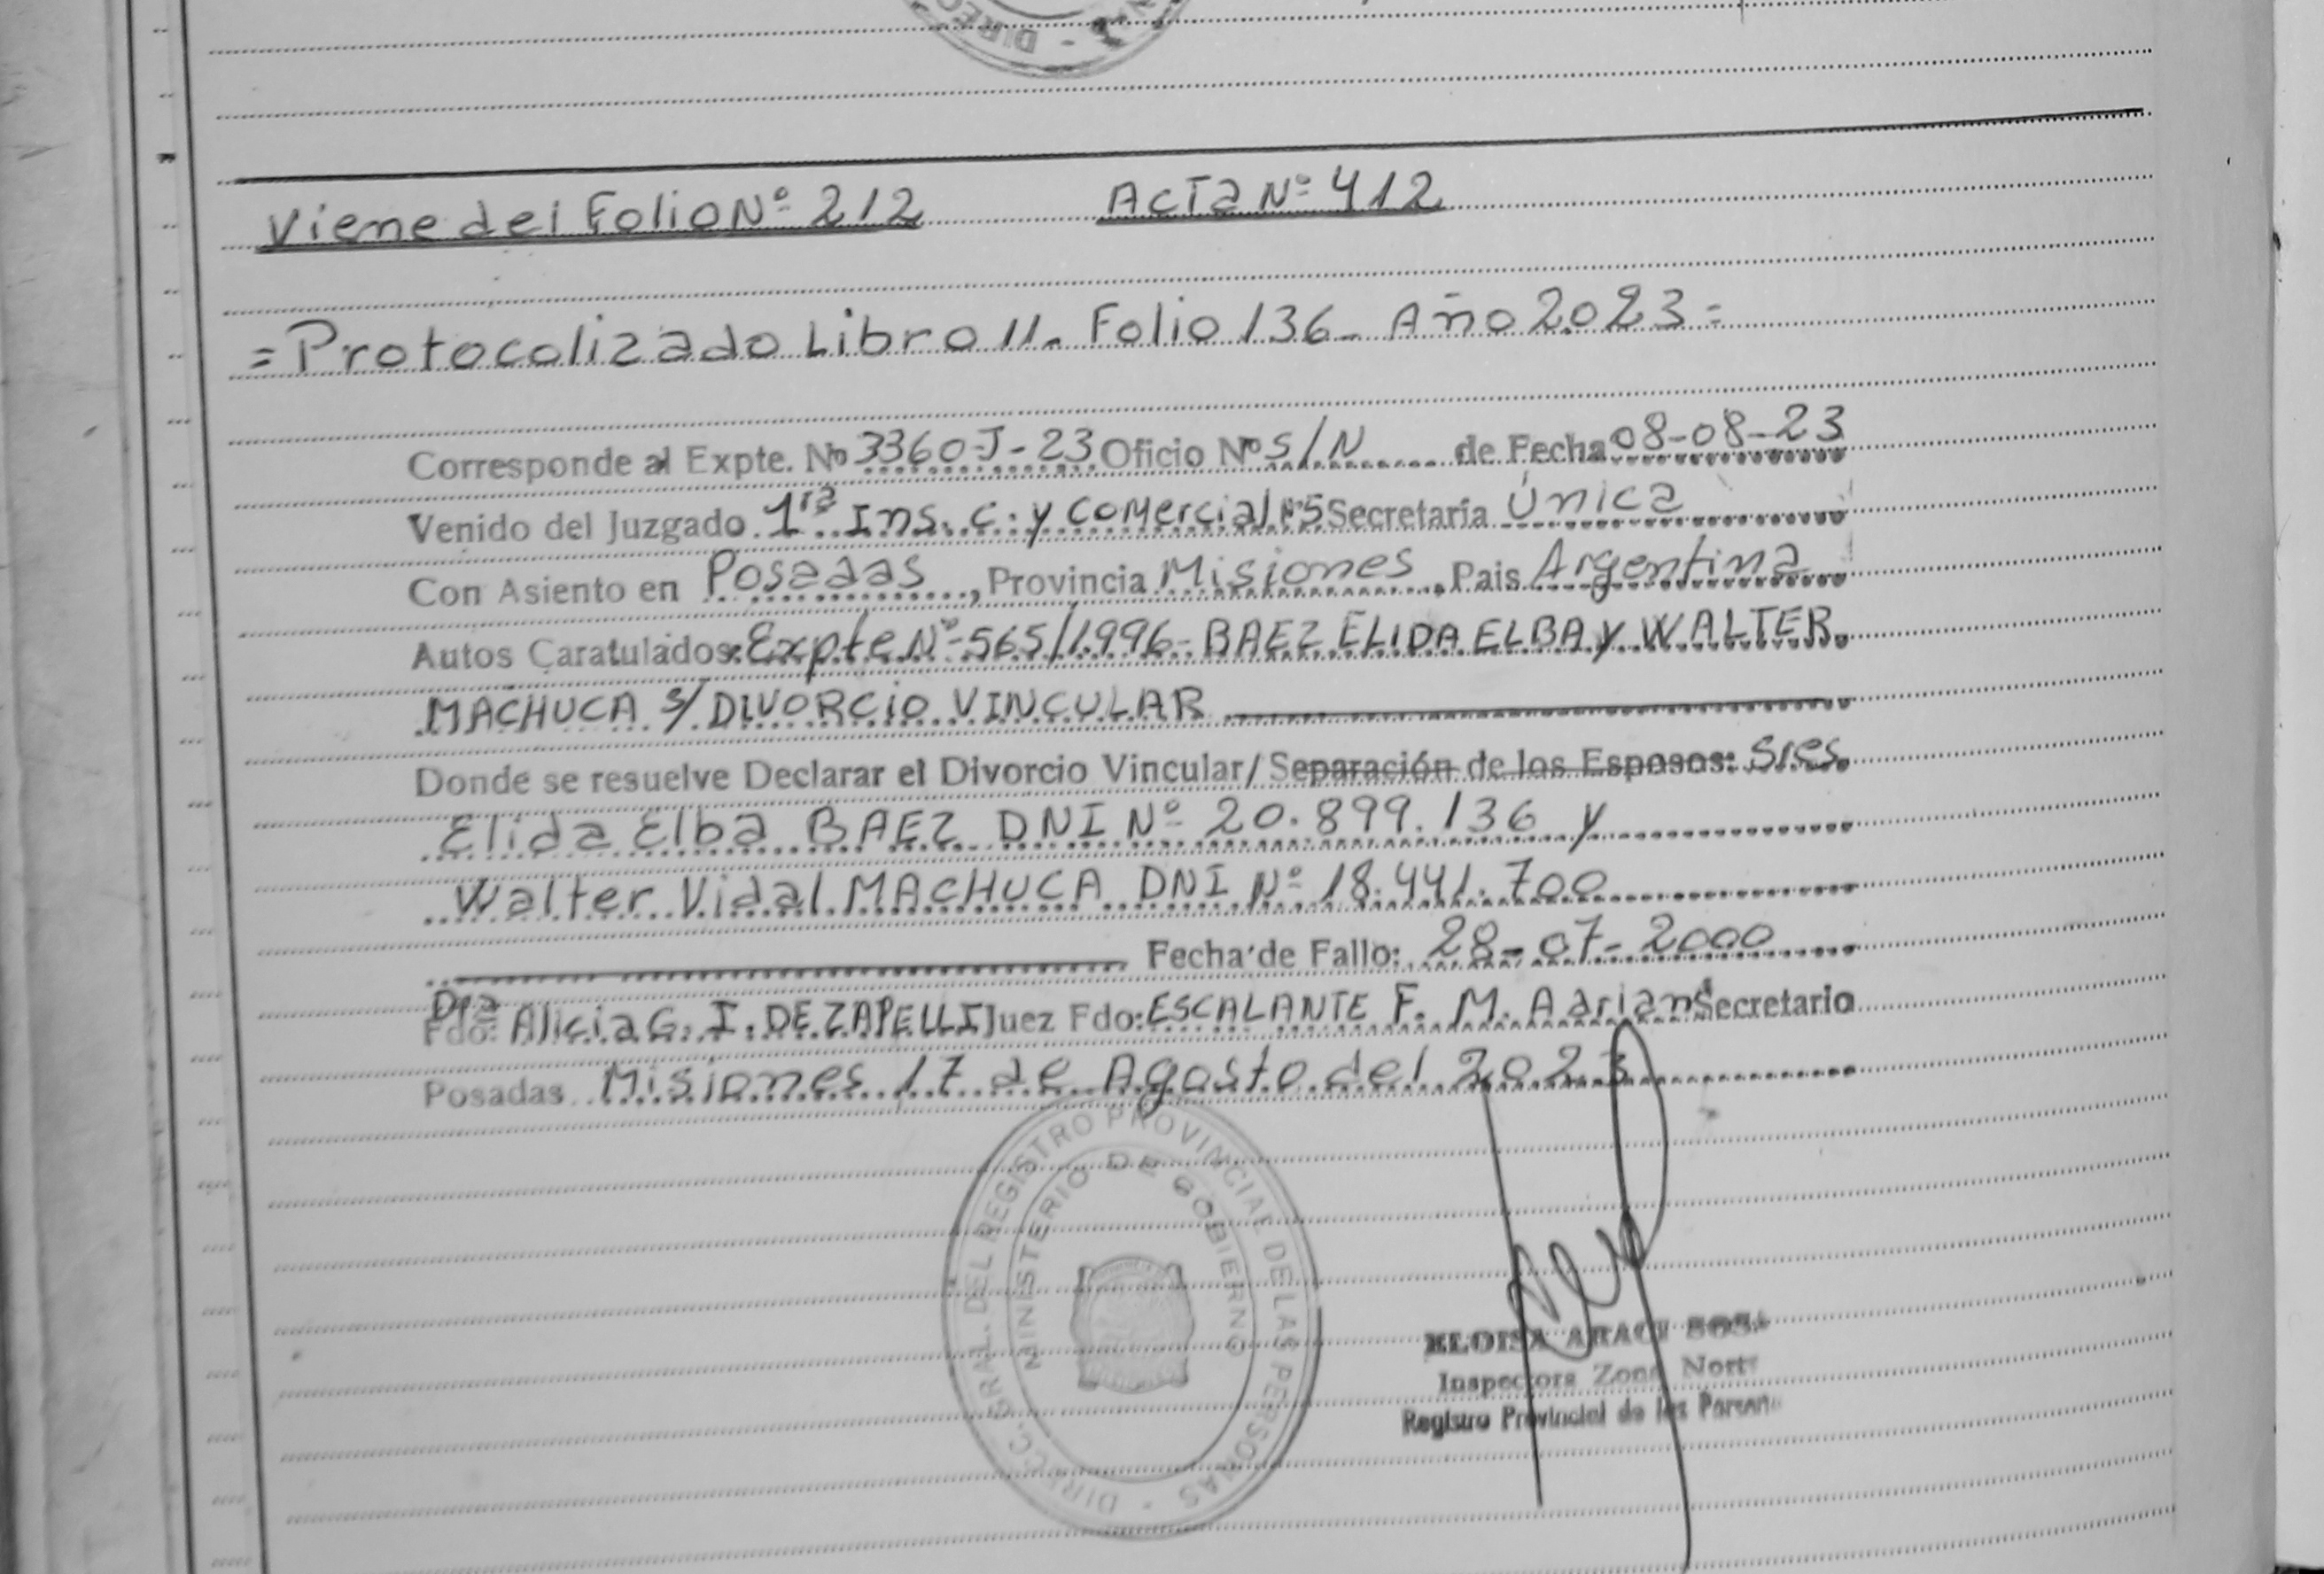 DIREC
Viene del Folio Nº 212 Acta Nº 412
=Protocolizado Libro 11. Folio 136- Año 2.023=
Corresponde al Expte. Nº 3360-J-23 Oficio Nº S/N de Fecha 08-08-23
Venido del Juzgado 1ra Ins. C. y Comercial Nº5 Secretaría Única
Con Asiento en Posadas, Provincia Misiones, Pais Argentina
Autos Caratulados: Expte Nº 565/1.996- BAEZ ELIDA ELBA y WALTER
MACHUCA S/ DIVORCIO VINCULAR
Donde se resuelve Declarar el Divorcio Vincular/ Separación de los Esposos: Sres.
Elida Elba BAEZ DNI Nº 20.899.136 y
Walter Vidal MACHUCA DNI Nº 18.441.700
Fecha de Fallo: 28-07-2000
Dra
Fdo: Alicia G. I. DE ZAPELLI Juez Fdo: ESCALANTE F. M. Adriana Secretario
Posadas Misiones 17 de Agosto del 2023
DIRECC. GRAL. DEL REGISTRO PROVINCIAL DE LAS PERSONAS -
MINISTERIO DE GOBIERNO
ELOISA ARACI SOSA
Inspectora Zona Norte
Registro Provincial de las Person